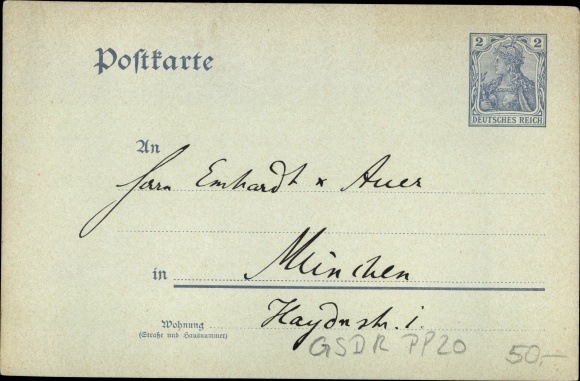 Postkarte
2 2
DEUTSCHES REICH
An
Herrn Emhardt & Auer
in München
Haydnstr. 1.
Wohnung
(Straße und Hausnummer)
GSDR PP20
50,-